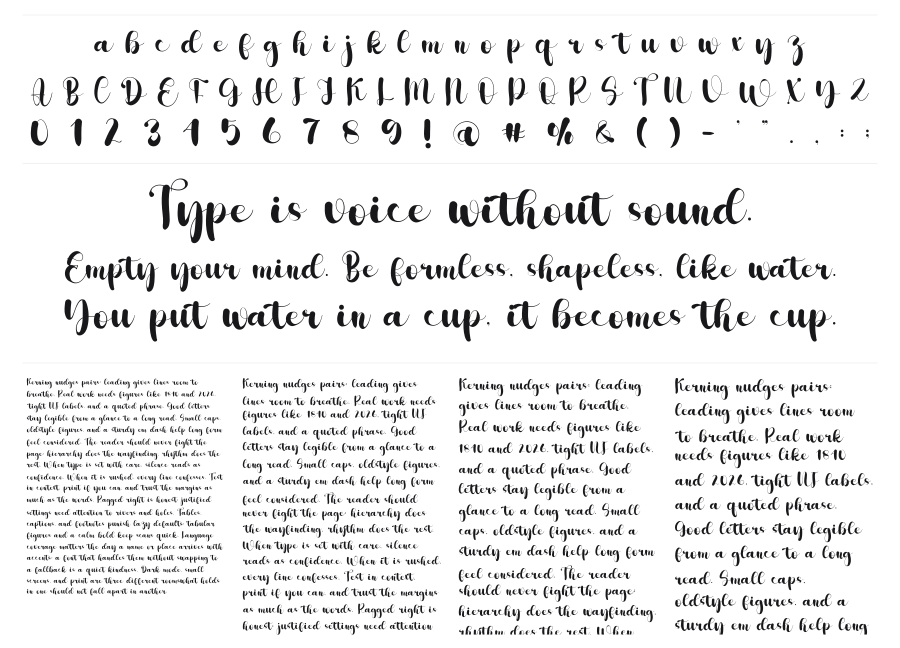 a b c d e f g h i j k l m n o p q r s t u v w x y z
A B C D E F G H I J K L M N O P Q R S T U V W X Y Z
0 1 2 3 4 5 6 7 8 9 ! @ # % & ( ) - ' " . , : ;
Type is voice without sound.
Empty your mind. Be formless, shapeless, like water.
You put water in a cup, it becomes the cup.
Kerning nudges pairs; leading gives lines room to
breathe. Real work needs figures like 1890 and 2026, tight UI
labels, and a quoted phrase. Good letters
stay legible from a glance to a long read. Small caps,
oldstyle figures, and a sturdy em dash help long form
feel considered. The reader should never fight the
page; hierarchy does the wayfinding, rhythm does the
rest. When type is set with care, silence reads as
confidence. When it is rushed, every line confesses. Test
in context, print if you can, and trust the margins as
much as the words. Ragged right is honest; justified
settings need attention to rivers and holes. Tables,
captions, and footnotes punish lazy defaults; tabular
figures and a calm bold keep scans quick. Language
coverage matters the day a name or place arrives with
accents; a font that handles them without swapping to
a fallback is a quiet kindness. Dark mode, small
screens, and print are three different rooms; what holds
in one should not fall apart in another.
Kerning nudges pairs; leading gives
lines room to breathe. Real work needs
figures like 1890 and 2026, tight UI
labels, and a quoted phrase. Good
letters stay legible from a glance to a
long read. Small caps, oldstyle figures,
and a sturdy em dash help long form
feel considered. The reader should
never fight the page; hierarchy does
the wayfinding, rhythm does the rest.
When type is set with care, silence
reads as confidence. When it is rushed,
every line confesses. Test in context,
print if you can, and trust the margins
as much as the words. Ragged right is
honest; justified settings need attention
Kerning nudges pairs; leading
gives lines room to breathe.
Real work needs figures like
1890 and 2026, tight UI labels,
and a quoted phrase. Good
letters stay legible from a
glance to a long read. Small
caps, oldstyle figures, and a
sturdy em dash help long form
feel considered. The reader
should never fight the page;
hierarchy does the wayfinding,
rhythm does the rest. When
Kerning nudges pairs;
leading gives lines room
to breathe. Real work
needs figures like 1890
and 2026, tight UI labels,
and a quoted phrase.
Good letters stay legible
from a glance to a long
read. Small caps,
oldstyle figures, and a
sturdy em dash help long